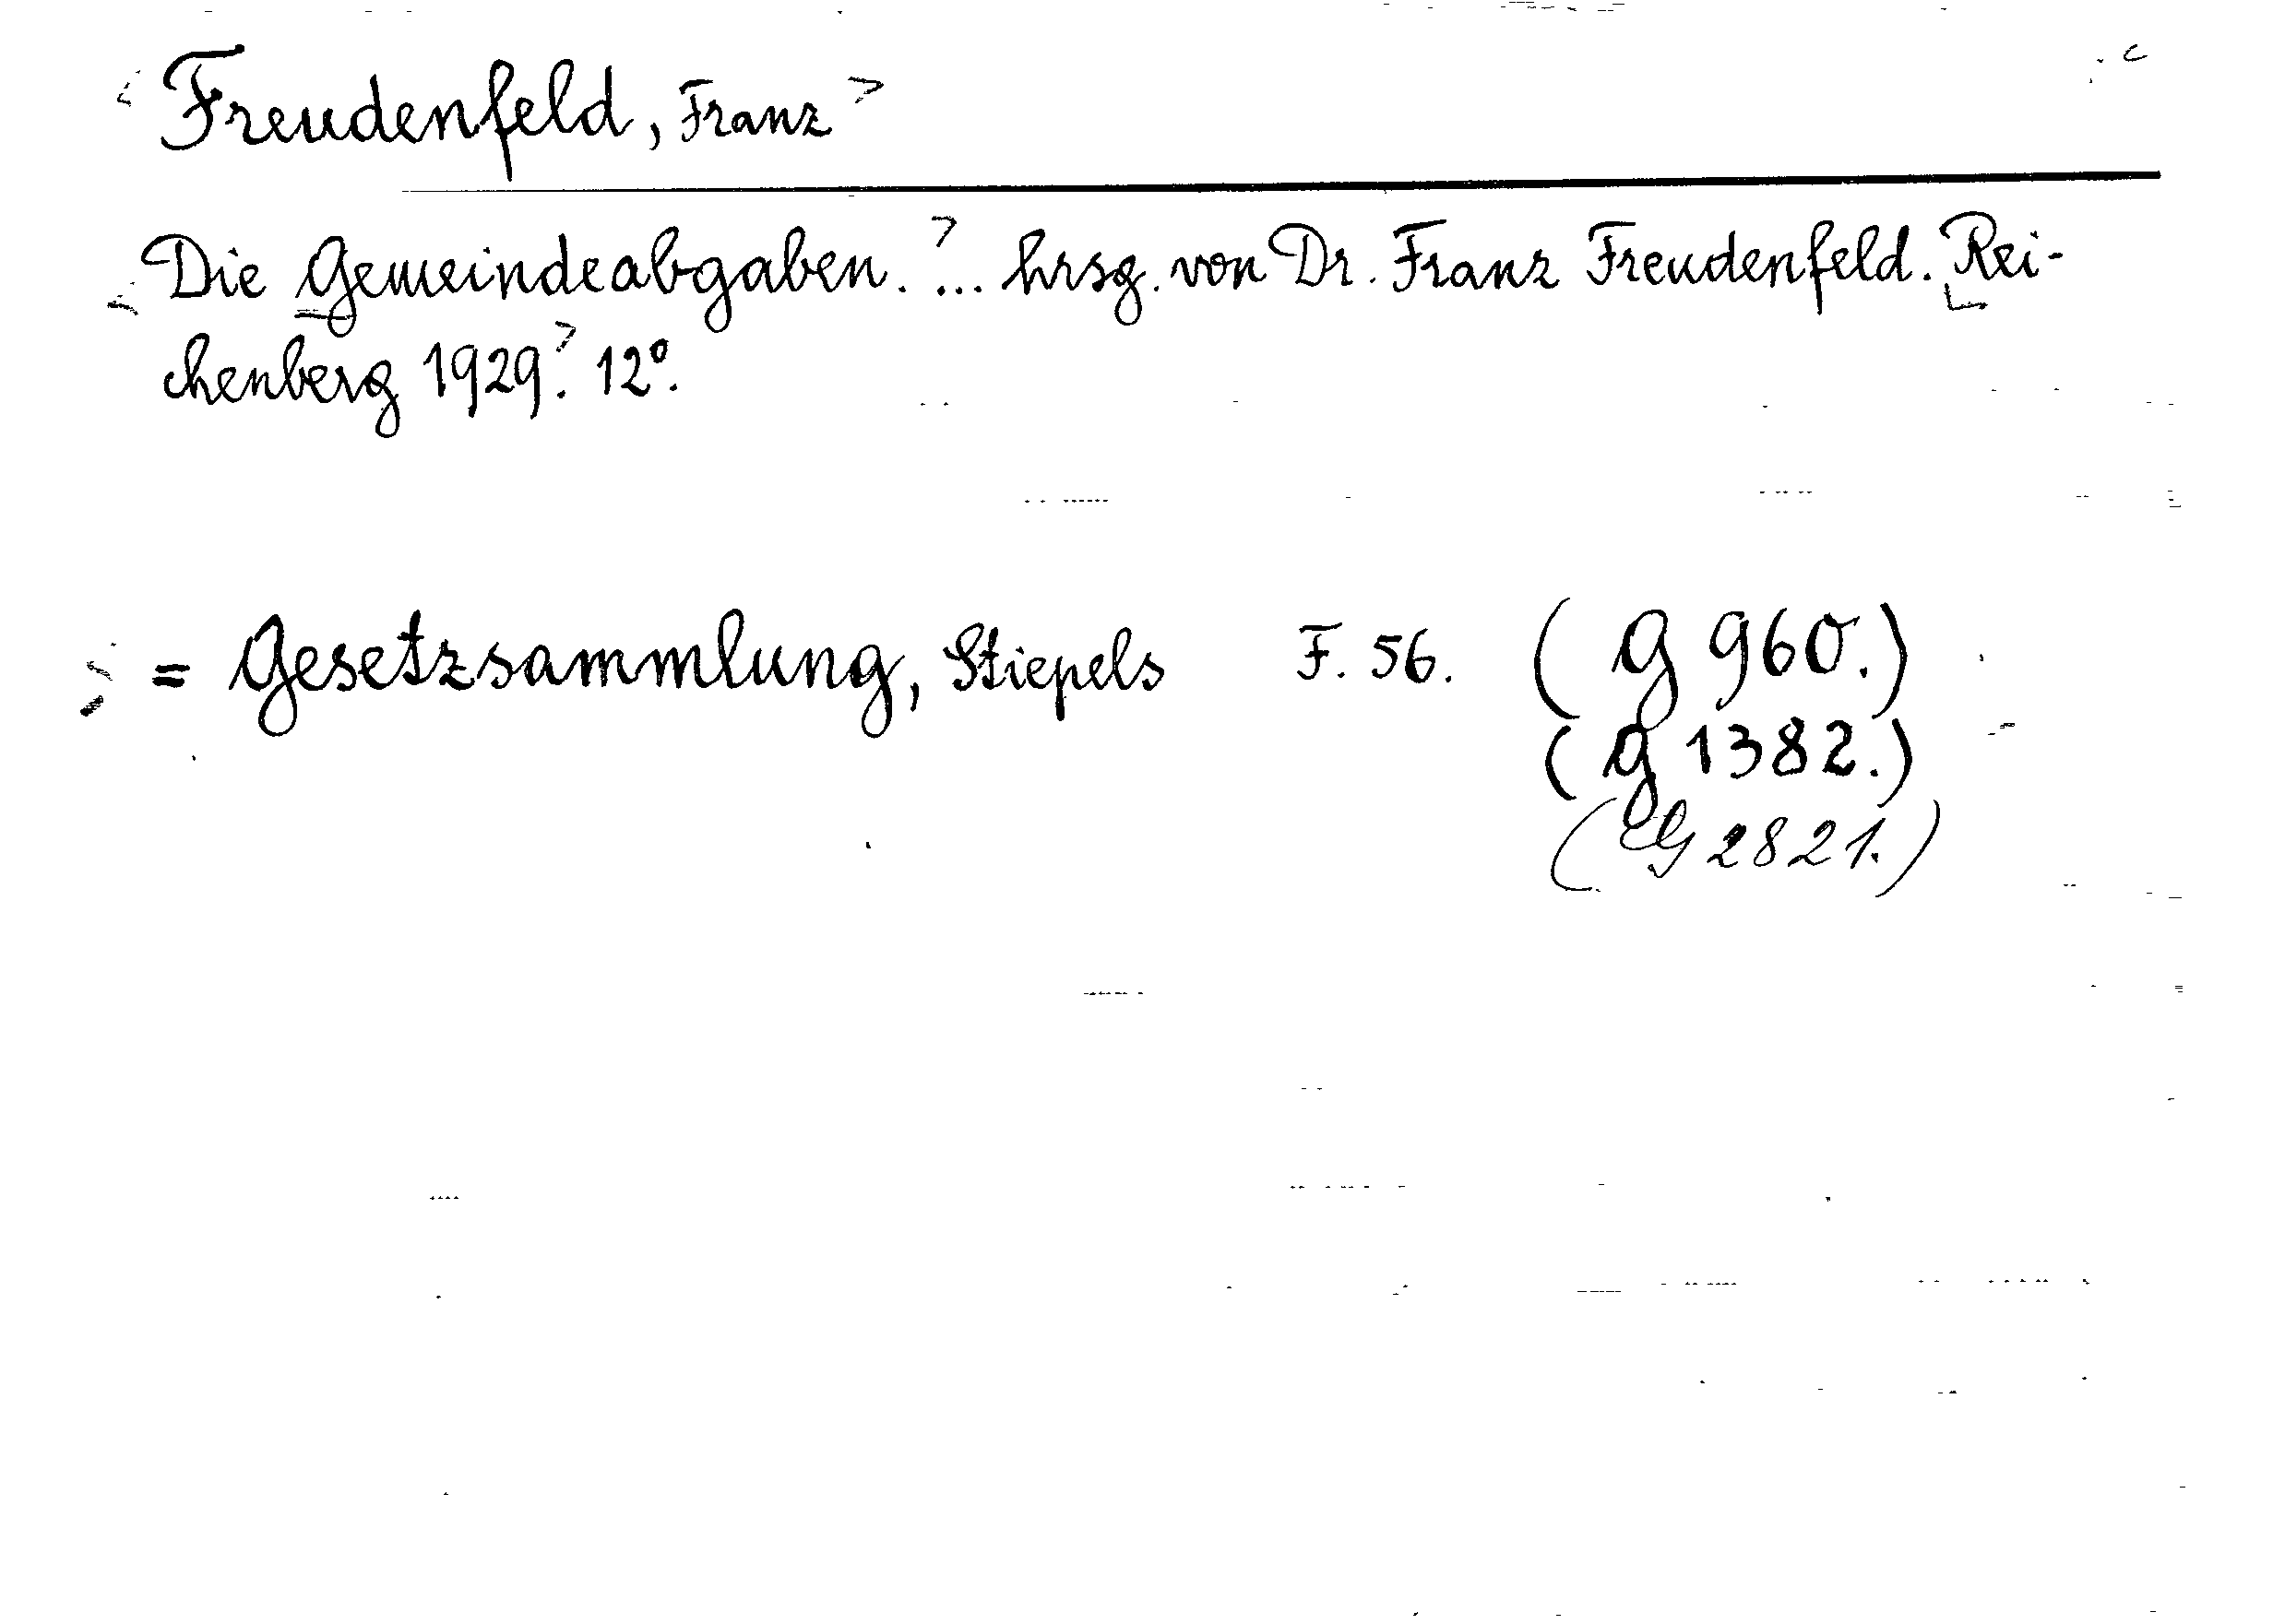 Freudenfeld, Franz
Die Gemeindeabgaben. ... hrsg. von Dr. Franz Freudenfeld. Rei-
chenberg 1929. 12º.
= Gesetzsammlung, Stiepels F. 56. (G 960.)
(G 1382.)
(G 2821.)